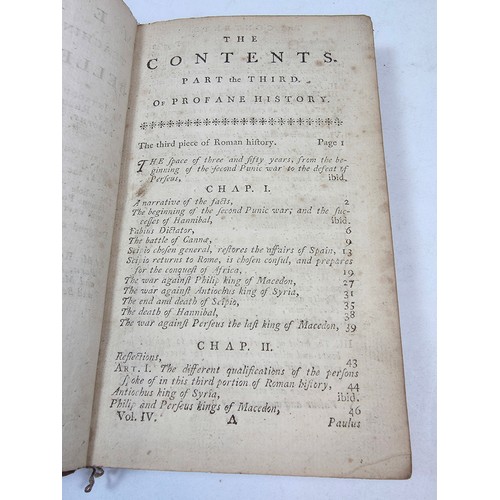 THE
CONTENTS.
PART the THIRD.
OF PROFANE HISTORY.
The third piece of Roman hiſtory. Page 1
THE ſpace of three and fifty years, from the be-
ginning of the ſecond Punic war to the defeat of
Perſeus, ibid.
CHAP. I.
A narrative of the facts, 2
The beginning of the ſecond Punic war; and the ſuc-
ceſſes of Hannibal, ibid.
Fabius Dictator, 6
The battle of Cannæ, 9
Scipio choſen general, reſtores the affairs of Spain, 13
Scipio returns to Rome, is choſen conſul, and prepares
for the conqueſt of Africa, 19
The war againſt Philip king of Macedon, 27
The war againſt Antiochus king of Syria, 31
The end and death of Scipio, 35
The death of Hannibal, 38
The war againſt Perſeus the laſt king of Macedon, 39
CHAP. II.
Reflections, 43
ART. I. The different qualifications of the perſons
ſpoke of in this third portion of Roman hiſtory, 44
Antiochus king of Syria, ibid.
Philip and Perſeus kings of Macedon, 46
Vol. IV. A Paulus